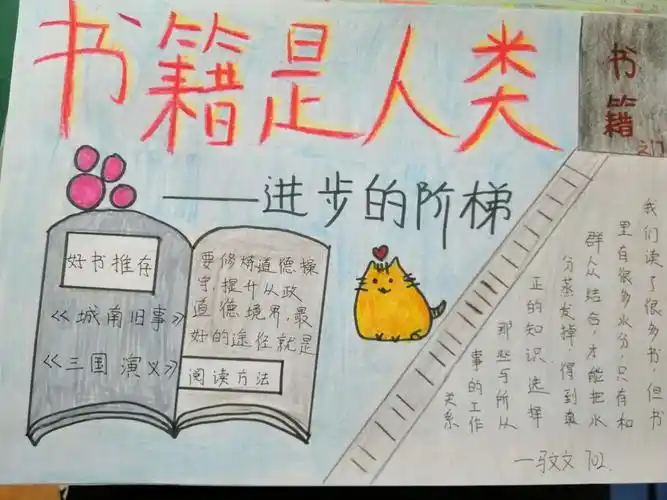 书籍是人类
——进步的阶梯
书籍
之门
好书推存
《城南旧事》
《三国演义》
要修炼道德操
守,提升从政
道德境界,最
好的途径就是
阅读方法
我们读了很多书,但书
里有很多水分,只有和
群众结合,才能把水
分蒸发掉,得到真
正的知识。选择
那些与所从
事的工作
关系
—马文文 702.